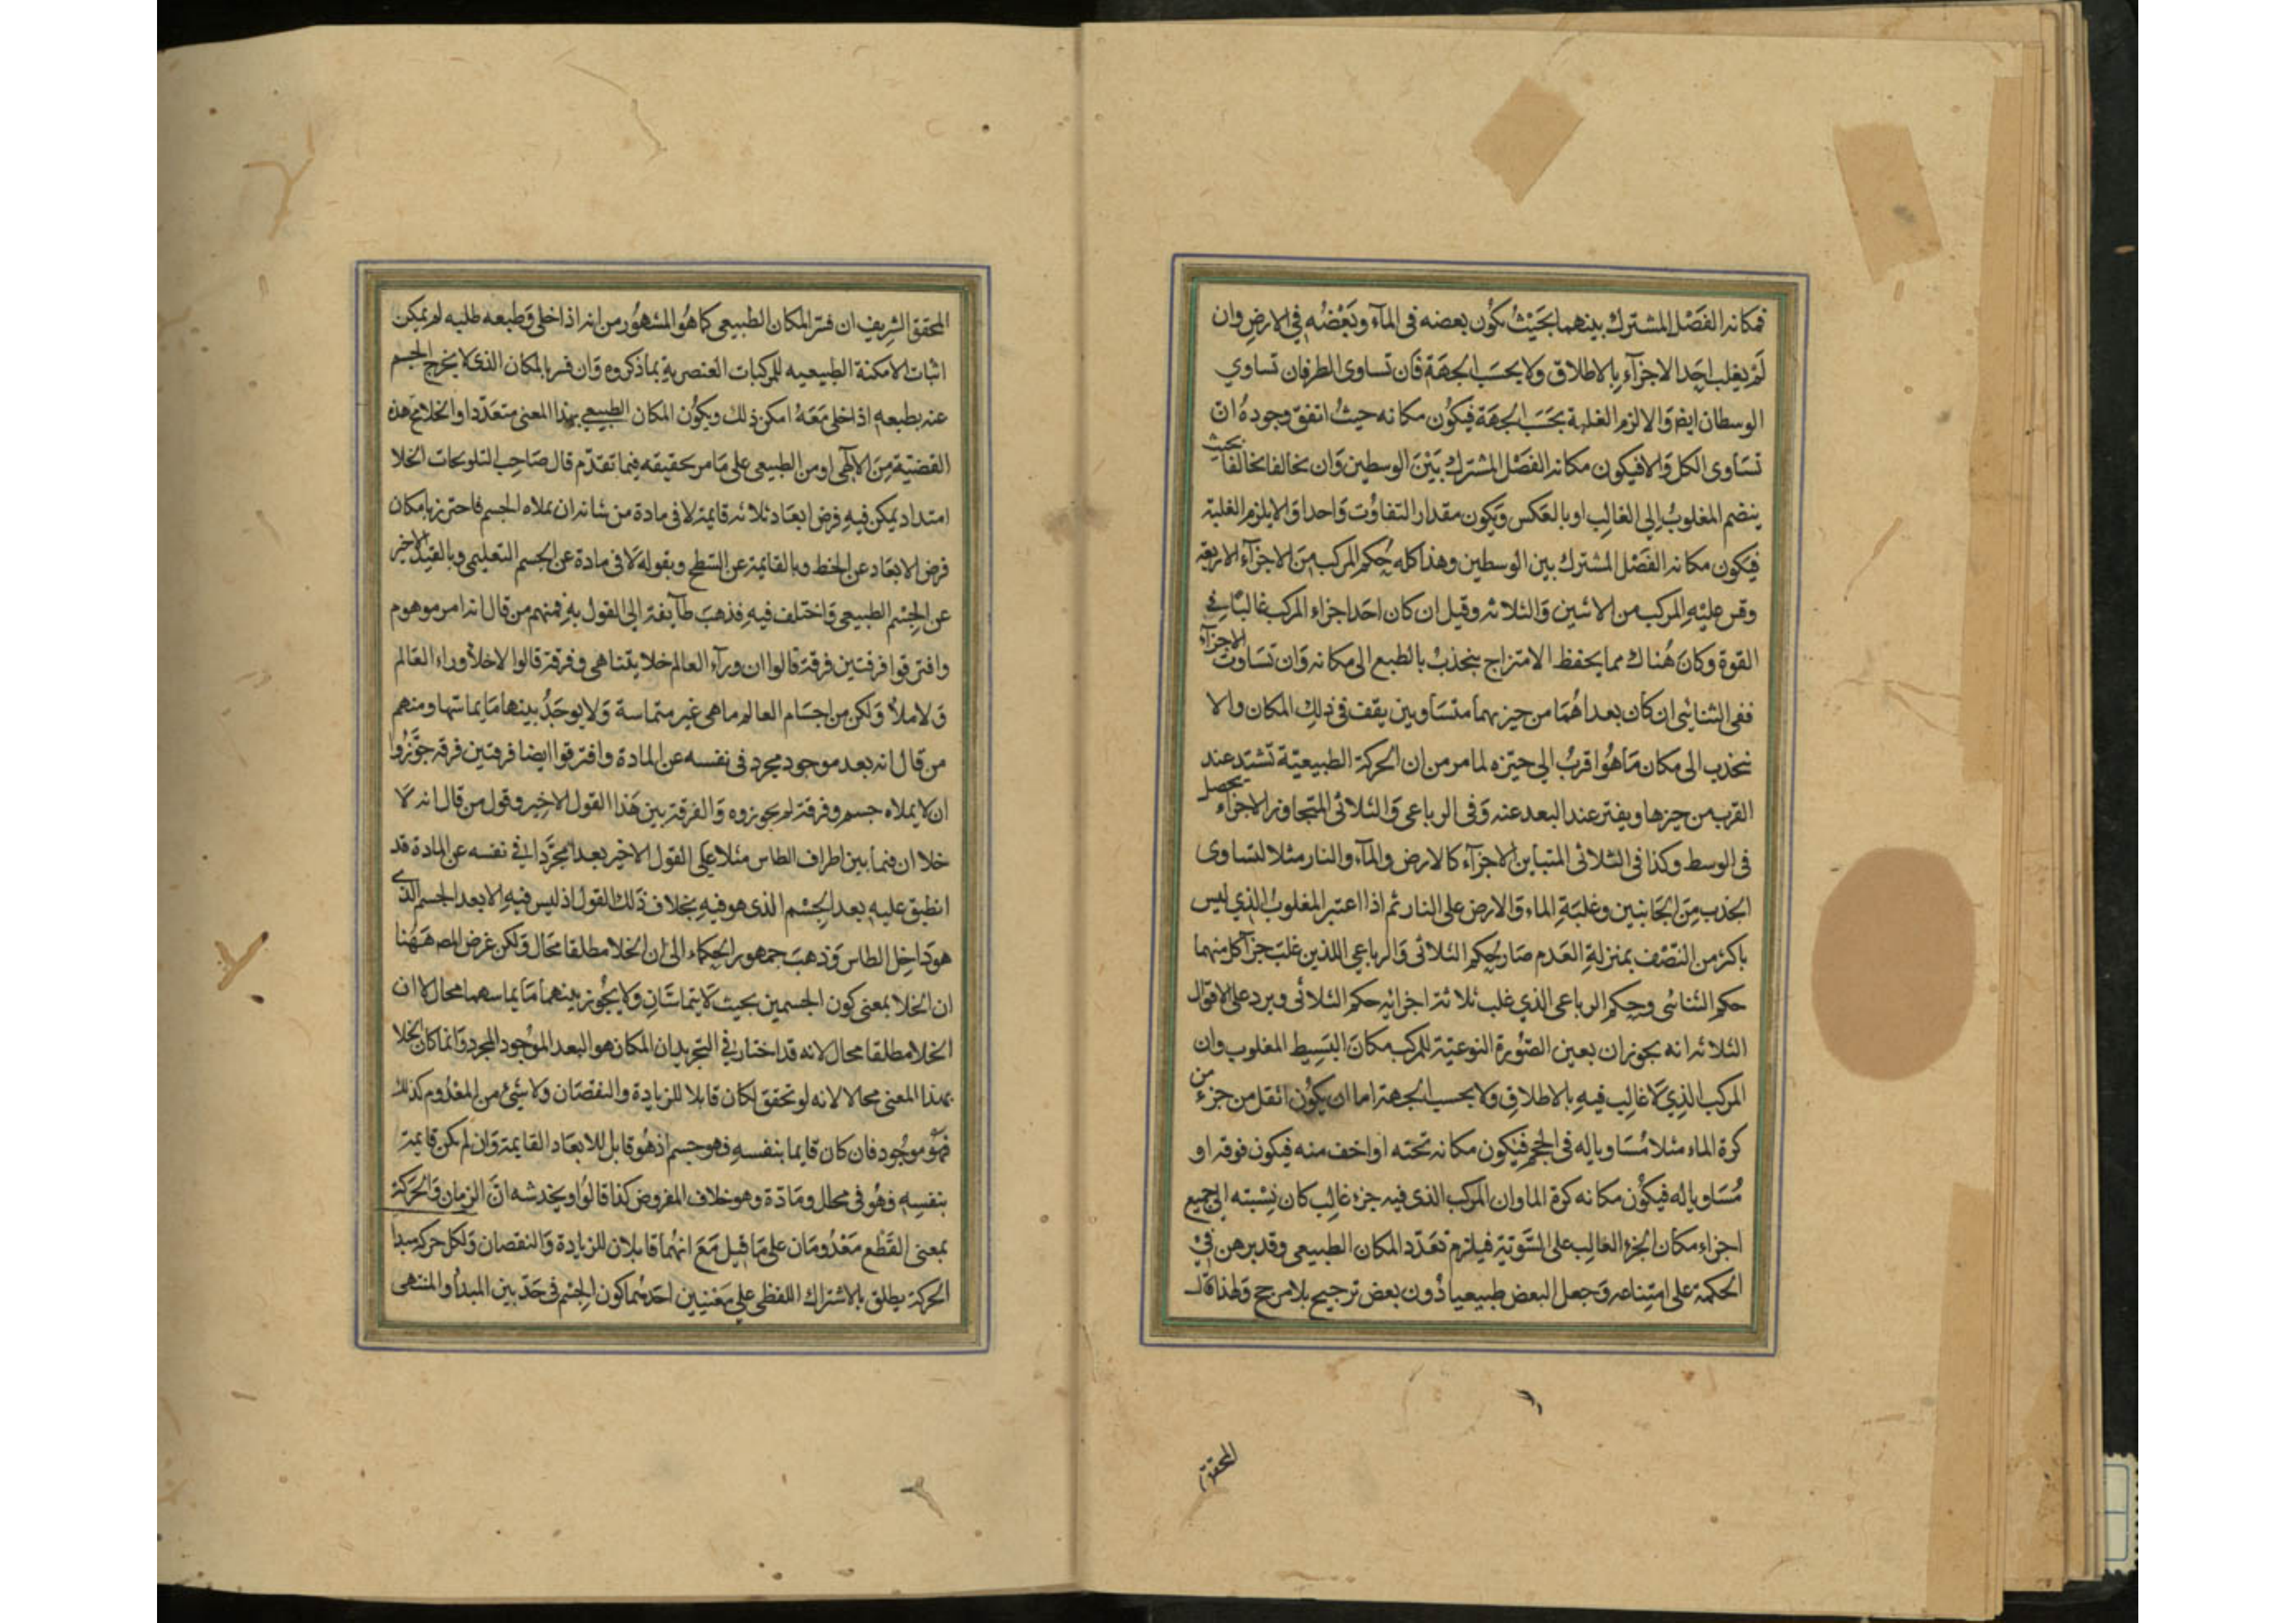 فمكانه الفَصْل المشترك بينهما بحَيْثُ يكُون بعضه فى المآء وبَعْضُه فِي الارضِ وان
لَمْ يغلب احَد الاجزآءِ بالاطلاق وَلا بحسَب الجهَة فَان تساوى الطرفان تساوي
الوسطان ايضا وَالا لزم الغلبة بحَسَب الجهَة فيكُون مكانه حيثُ اتفق وجوده ان
تسَاوى الكل وَالا فيكون مكانه الفَصْل المشترك بَيْنَ الوسطين وَان تخالفا تخالفا بحيث
ينضم المغلوبُ إلى الغالِب اوبالعَكس وَيكون مقدار التفاوُت وَاحدا وَالا يلزم الغلبة
فيكون مكانه الفَصْل المشترك بين الوسطين وهذا كله حُكم المركب مِنَ الاجزآء الاربعة
وقس عليْهِ المركب من الاثنين وَالثلاثه وقيل ان كان احَد اجزاء المركب غالبًا فِي
القوة وكانَ هُناك مما يحفظ الامتزاج ينجذبُ بالطبع الى مكانه وَان تسَاوت الاجزآء
ففى الثنائى ان كان بعداهُمَا من حيزيهمَا متسَاويين يقف فى ذلِك المكان والا
ينجذب الى مكان مَا هُوا قربُ الي حيّزه لما مر من ان الحركة الطبيعيّة تشتد عند
القرب من حيزها ويفتر عند البعد عنه وَفى الرباعى وَالثلاثى المتجاوز الاجزاء يحصل
فى الوسط وكذا فى الثلاثى المتباين الاجزآء كالارض والمآء والنار مثلا لتساوى
الجذب مِنَ الجَانبين وغلبَة الماء وَالارض على النار ثم اذا اعتبر المغلوبُ الذِي ليس
باكثر من النّصْف بمنزلة العَدم صَار حُكم الثلاثى وَالرباعى اللذين غلب جزآ كل منهما
حكم الثنائى وحكم الرباعى الذي غلب ثلاثة اجزائه حكم الثلاثى ويرد على الاقوال
الثلاثه انه يجوز ان يعين الصّورة النوعيّة للمركب مكانَ البَسِيط المغلوب وان
المركب الذِي لَا غالِب فيهِ بالاطلاقِ وَلا بحسب الجهة اما ان يكُون اثقل من جزء من
كرة الماء مثلا مُسَاويا له فى الحجم فيكون مكانه تحته اواخف منه فيكون فوقه او
مُسَاويا له فيكُون مكانه كرة الما وان المركب الذى فيه جزء غالِب كان نِسْبته الى جميع
اجزاء مكان الجزء الغالِب على السّوّية فيلزم تعَدّد المكان الطبيعى وقد برهن فِيْ
الحكمة على امتِناعه وَجعل البعض طبيعيا دُون بعض ترجيح بلا مرجح وَلهذا قال
المحقق
المحقق الشريف ان فسّر المكان الطبيعى كما هُو المشهُور من انه اذا خلى وَطبعه طلبه لم يمكن
اثبات الامكنة الطبيعيه للمركبات العنصريةِ بما ذكروه وَان فسر بالمكان الذى لا يخرج الجسم
عنه بطبعهِ اذا خلى مَعَهُ امكن ذلك ويكوُن المكان الطبيعى بهذا المعنى متعَدّدا والخلا مَعَ هذه
القضيّة مِنَ الالٰهي اومن الطبيعى على مَا مر تحقيقه فيما تقدّم قال صَاحِب التلويحات الخلا
امتداد يمكن فيهِ فرض ابعَاد ثلاثه قايمة لا فى مادة من شانه ان يملاه الجسم فاحترز بامكان
فرض الابعَاد عن الخط وبالقايمة عن السّطح وبقوله لَا فى مادة عن الجسم التعليمى وبالقيد الاخير
عن الجِسْم الطبيعى وَاختلف فيهِ فذهبَ طآيفة إلى القول بهِ فمنهم من قال انه امر موهوم
وافترقوا فرقتين فرقة قالوا ان ورآء العالم خلا يتناهى وفرقة قالوا لا خلأ وراء العَالم
وَلا ملأ وَلكن من اجسَام العالم ما هى غير متماسة وَلا يوجَدُ بينهما مَا يماسّها ومنهم
من قال انه بعد موجود مجرد فى نفسه عن المادة وافترقوا ايضا فرقتين فرقه جوَّزوا
ان لا يملاه جسم وفرقة لم يجوزوه وَالفرقة بين هَذا القول الاخِير وقول من قال انه لَا
خلا ان فيما بين اطراف الطاس مثلا علَى القول الاخِير بعدا مجرَّدا فِي نفسه عن المادة قد
انطبق عليهِ بعد الجِسْم الذى هو فيهِ بخلاف ذلك القول اذ ليس فيهِ الا بعد الجسم الذي
هو دَاخِل الطاس وَذهبَ جمهور الحكماء الى ان الخلا مطلقا محَال وَلكن غرض المصـ هَهُنا
ان الخلا بمعنى كون الجسمين بحيث لَا يتماسَّان وَلا يكُون بينهمَا مَا يماسهما محال لا ان
الخلا مطلقا محال لانه قد اختار فِي التجريد ان المكان هو البعد الموْجود المجرد وَانما كان الخلا
بهذا المعنى محالا لانه لو تحقق لكان قابلا للزيادة والنقصَان وَلا شئ من المعْدُوم كذلك
فهُو موجُود فان كان قايما بنفسهِ فهو جسم اذ هُو قابل للابعَاد القايمة وَان لم يكن قايمة
بنفسِهِ فهُو فى محل ومَادّة وهو خلاف المفروض كذا قالُوا ويخدشه انَّ الزمان وَالحَركة
بمعنى القَطْع مَعْدُومَان على مَا قيل مَعَ انهُما قابلان للزيادة وَالنقصان وَلكل حركة مبدا
الحركة يطلق بالاشتراك اللفظى على مَعْنيَين احدهُما كون الجِسْم فى حَدّ بين المبدأ والمنتهى